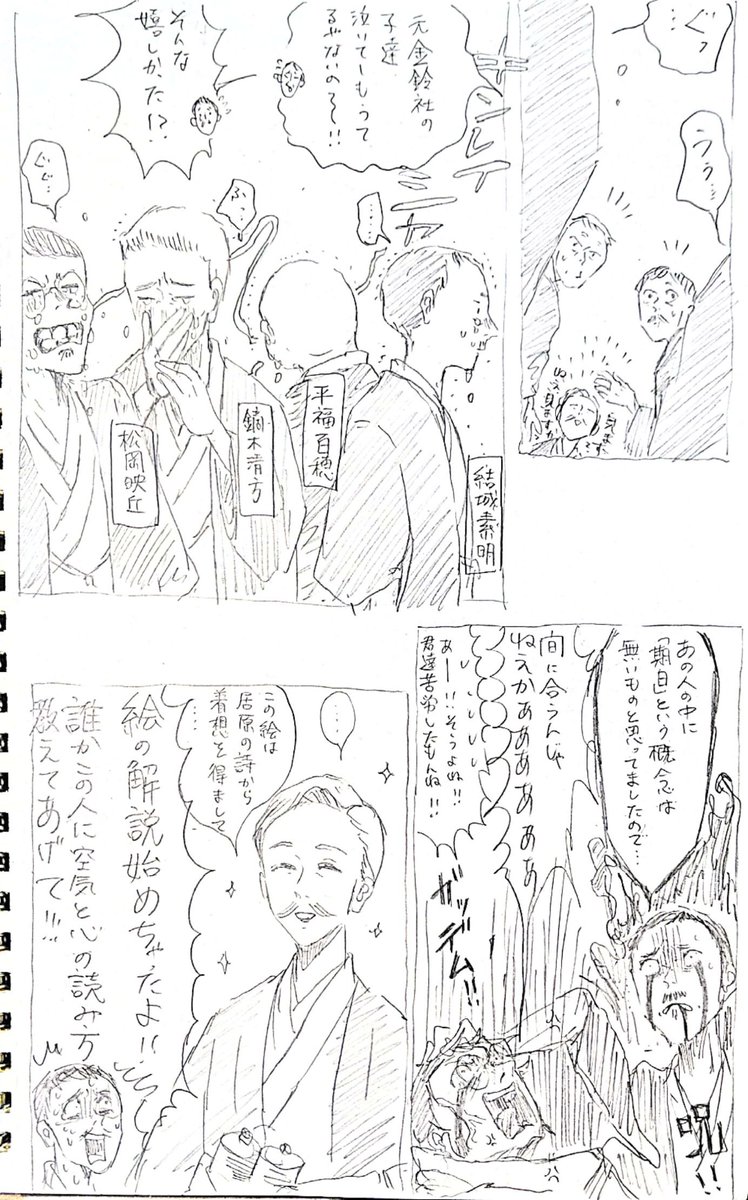 ぐっ
…
うぅ…
見ます
見ますか
キンレイ
シャ
元金鈴社の
子達
泣いてしもうて
るやないの〜〜!!
そんな
嬉しかった!?
…
ふっ
ぐぐ…
結城素明
平福百穂
鏑木清方
松岡映丘
あの人の中に
「期日」という概念は
無いものと思ってましたので…
間に合うんじゃ
ねえかああああああ
あー!!そうよね!!
君達苦労したもんね!!
ガッデム!!
呪
…
この絵は
屈原の詩から
着想を得まして
絵の解説始めちゃったよ!!
誰かこの人に空気と心の読み方
教えてあげて!!!